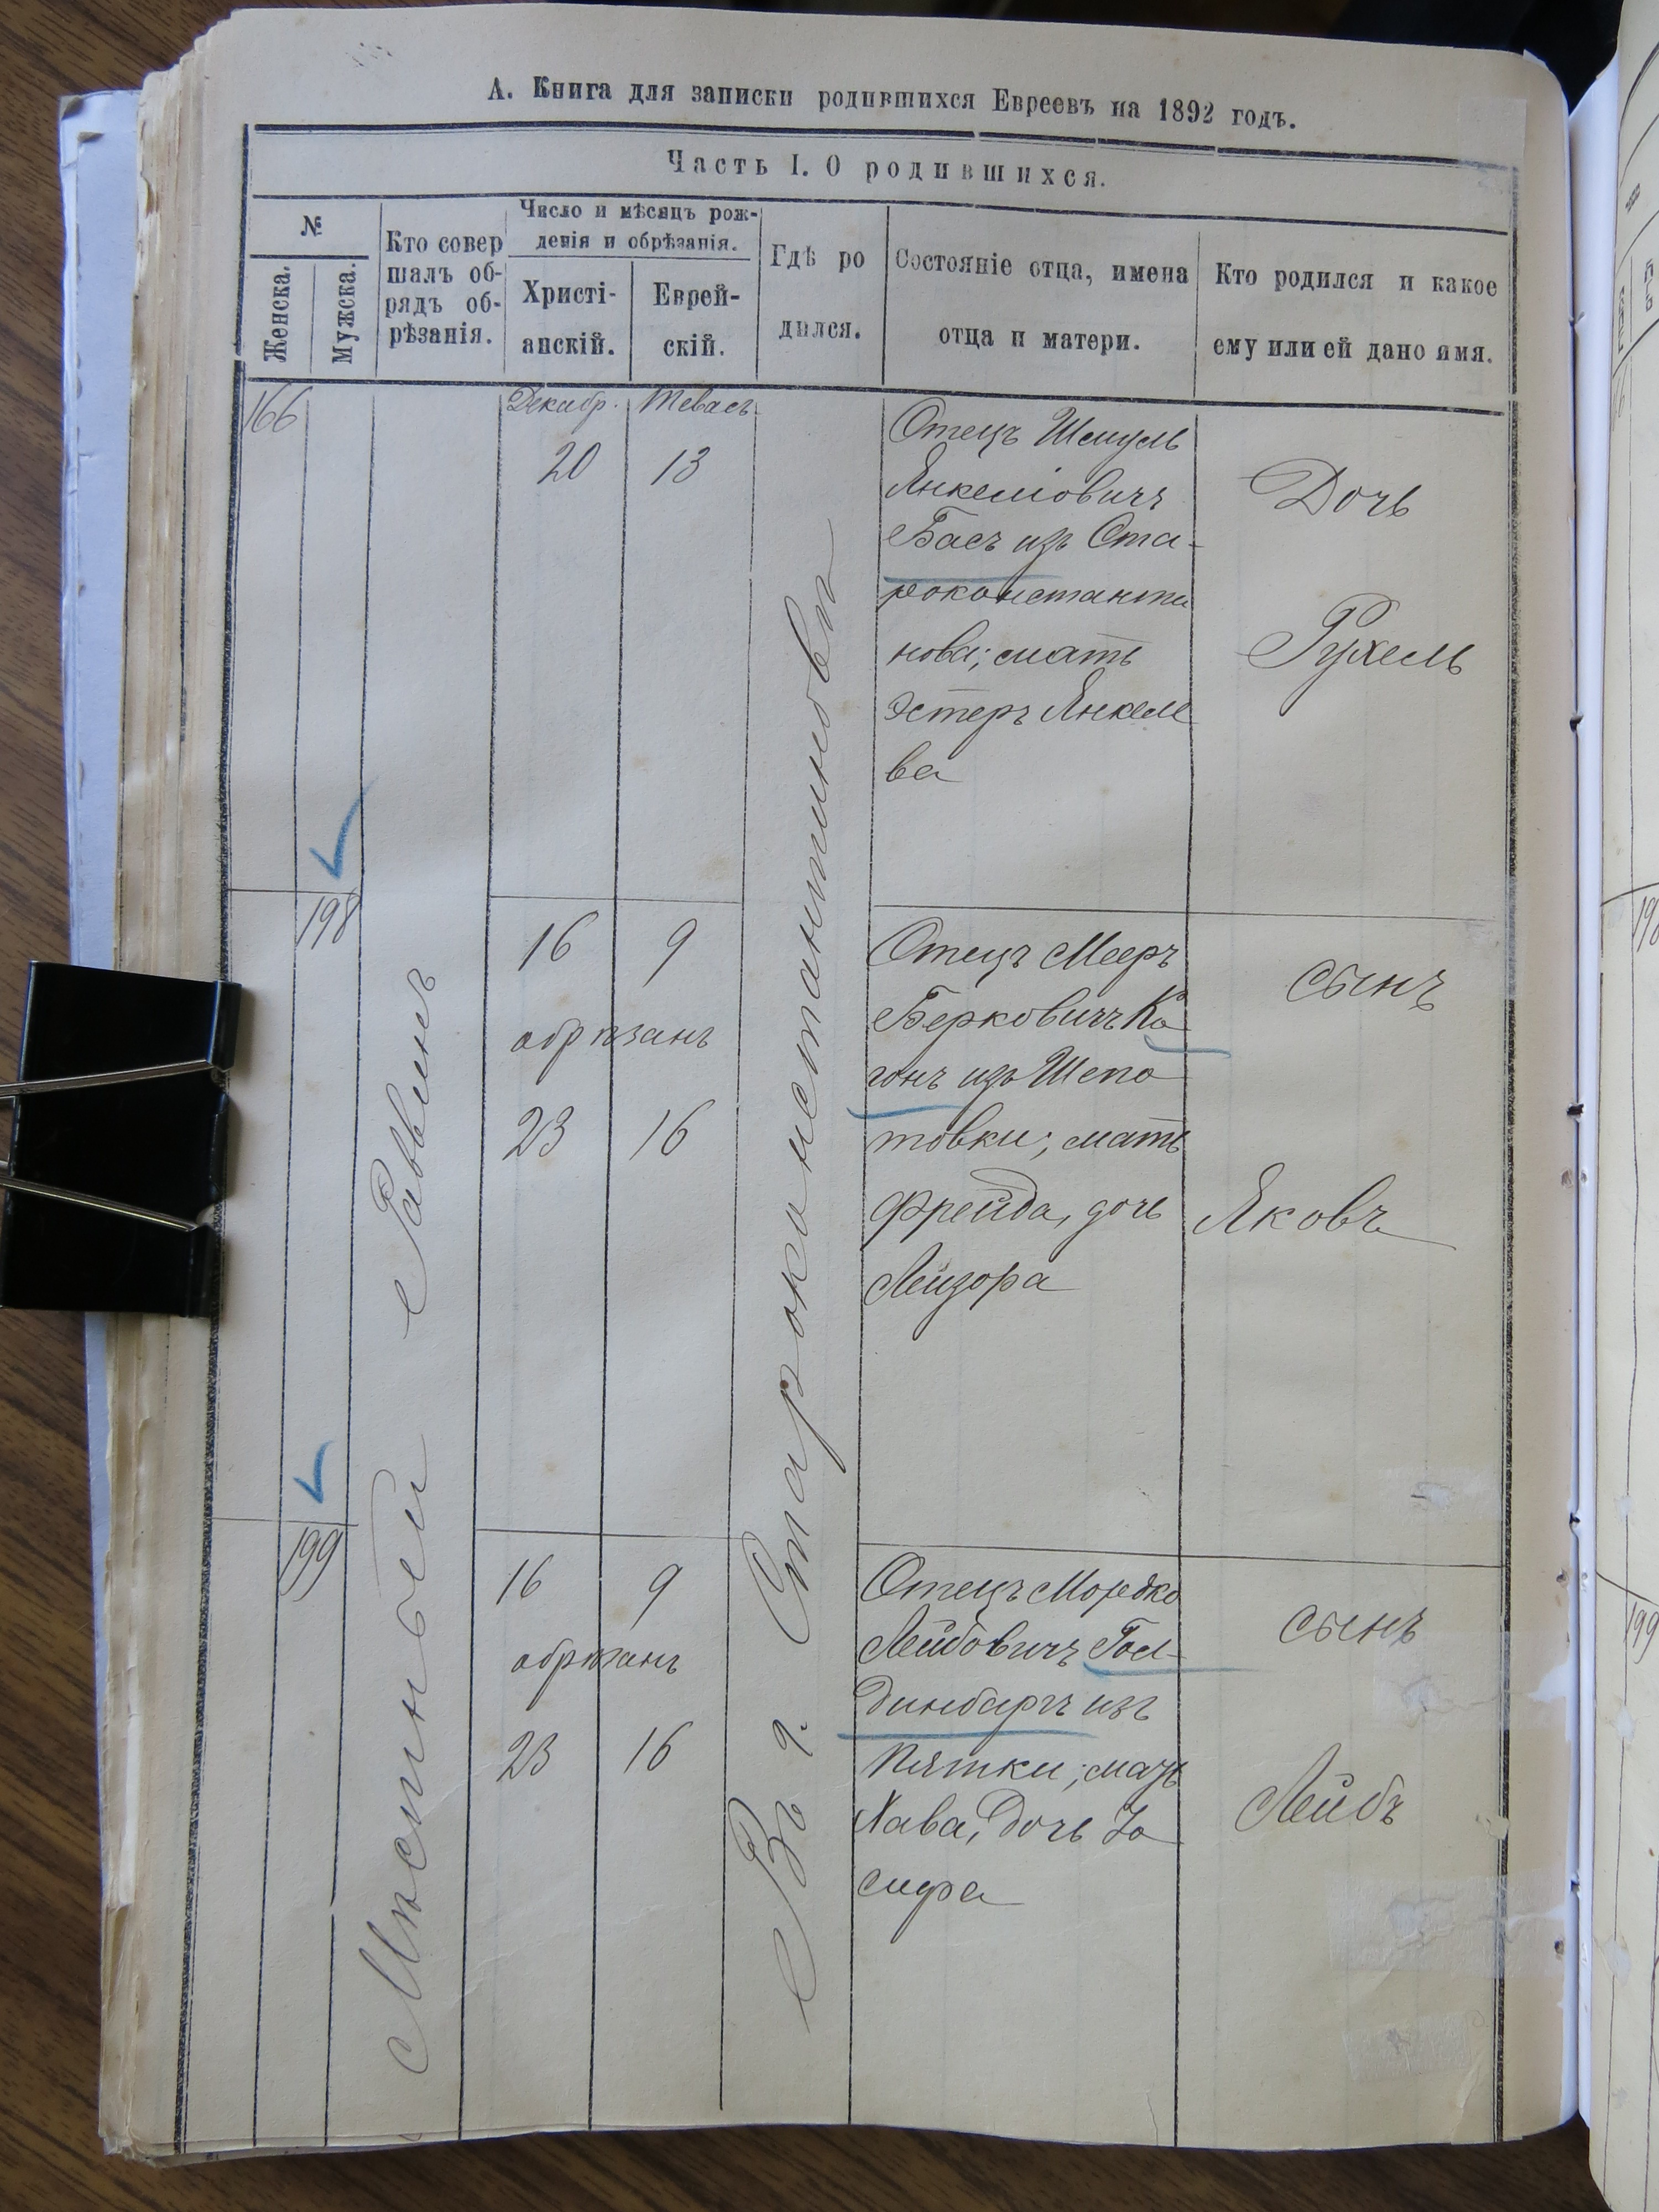 А. Книга для записки родившихся Евреевъ на 1892 годъ.
Часть I. О родившихся.
№
Женска.
Мужска.
Кто совер
шалъ об-
рядъ об-
рѣзанія.
Число и мѣсяцъ рож-
денія и обрѣзанія.
Христі-
анскій.
Еврей-
скій.
Гдѣ ро
дился.
Состояніе отца, имена
отца и матери.
Кто родился и какое
ему или ей дано имя.
166
Декабр.
Тевасъ
20
13
Отецъ Шмуль
Янкеліовичъ
Басъ изъ Ста-
роконстанти
нова; мать
Эстеръ Янкеле
ва
Дочь
Рухель
198
16
9
обрѣзанъ
23
16
Отецъ Мееръ
Берковичъ Ка
ганъ изъ Шепе
товки; мать
Фрейда, дочь
Лейзора
сынъ
Яковъ
199
16
9
обрѣзанъ
23
16
Отецъ Мордко
Лейбовичъ Гол-
динбаргъ изъ
Пятки; мать
Хава, дочь Іо
сифа
сынъ
Лейбъ
Мѣстный Раввинъ
Въ г. Староконстантиновѣ
198
199